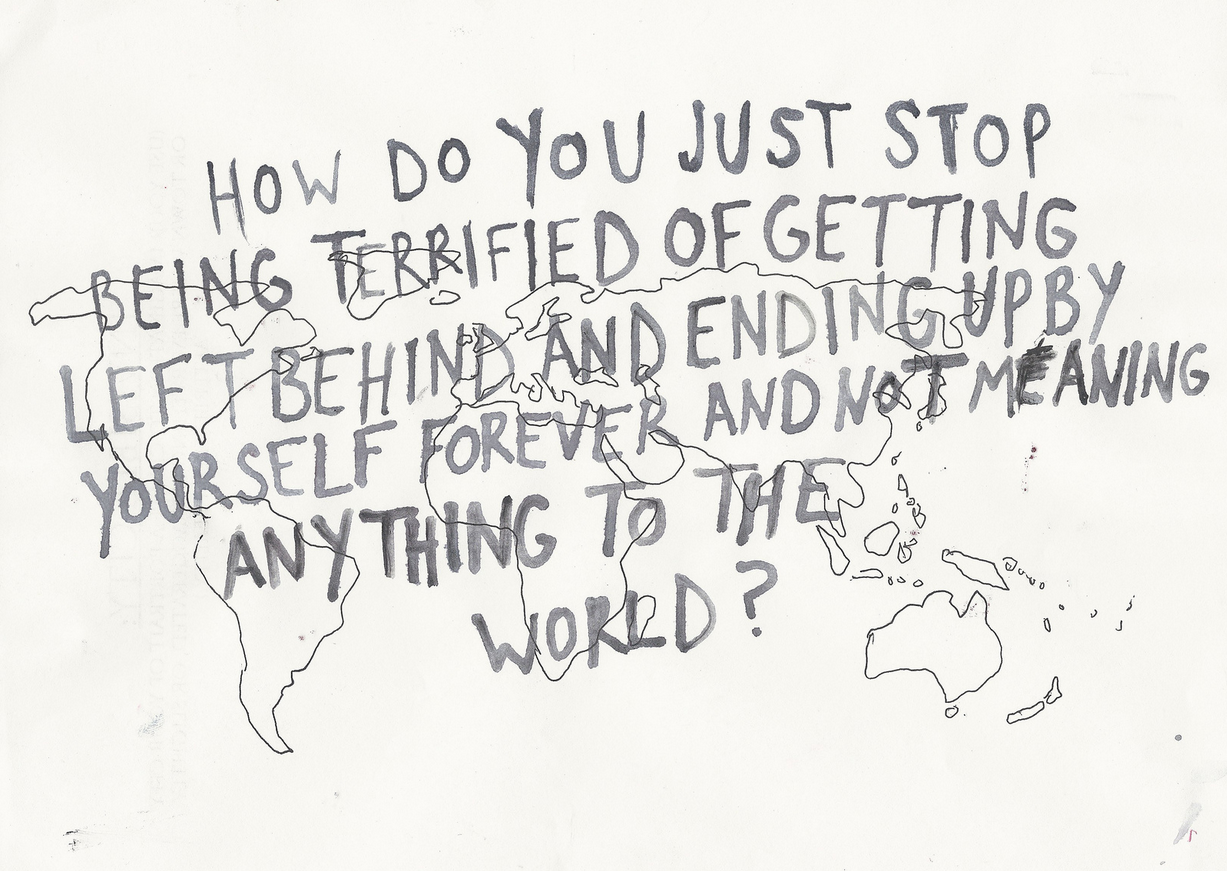 HOW DO YOU JUST STOP
BEING TERRIFIED OF GETTING
LEFT BEHIND AND ENDING UP BY
YOURSELF FOREVER AND NOT MEANING
ANYTHING TO THE
WORLD?